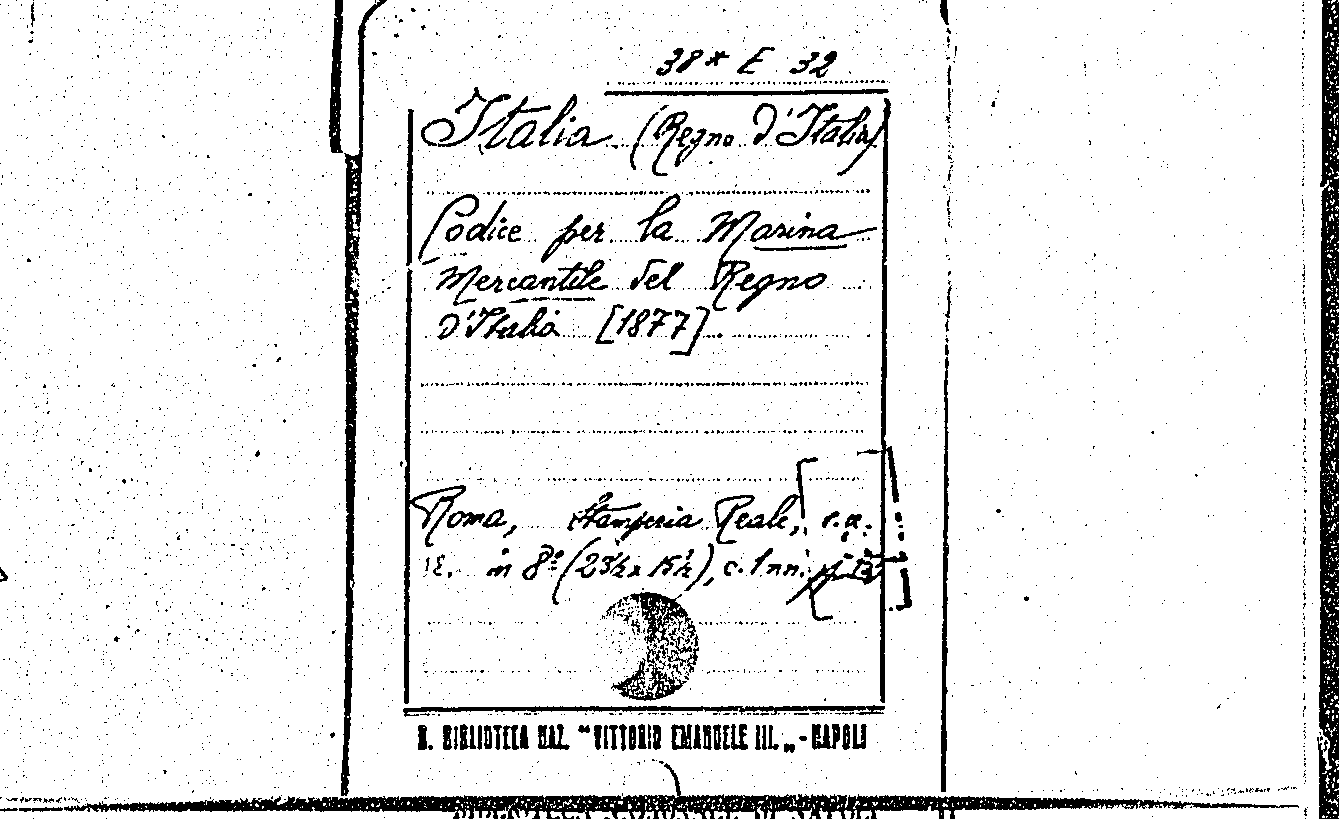 38* E 32
Italia. (Regno d'Italia)
Codice per la Marina
Mercantile del Regno
d'Italia [1877].
Roma, Stamperia Reale,
in 8º (23½ x 15½), c. 1 nn.
R. BIBLIOTECA NAZ. "VITTORIO EMANUELE III.„ - NAPOLI